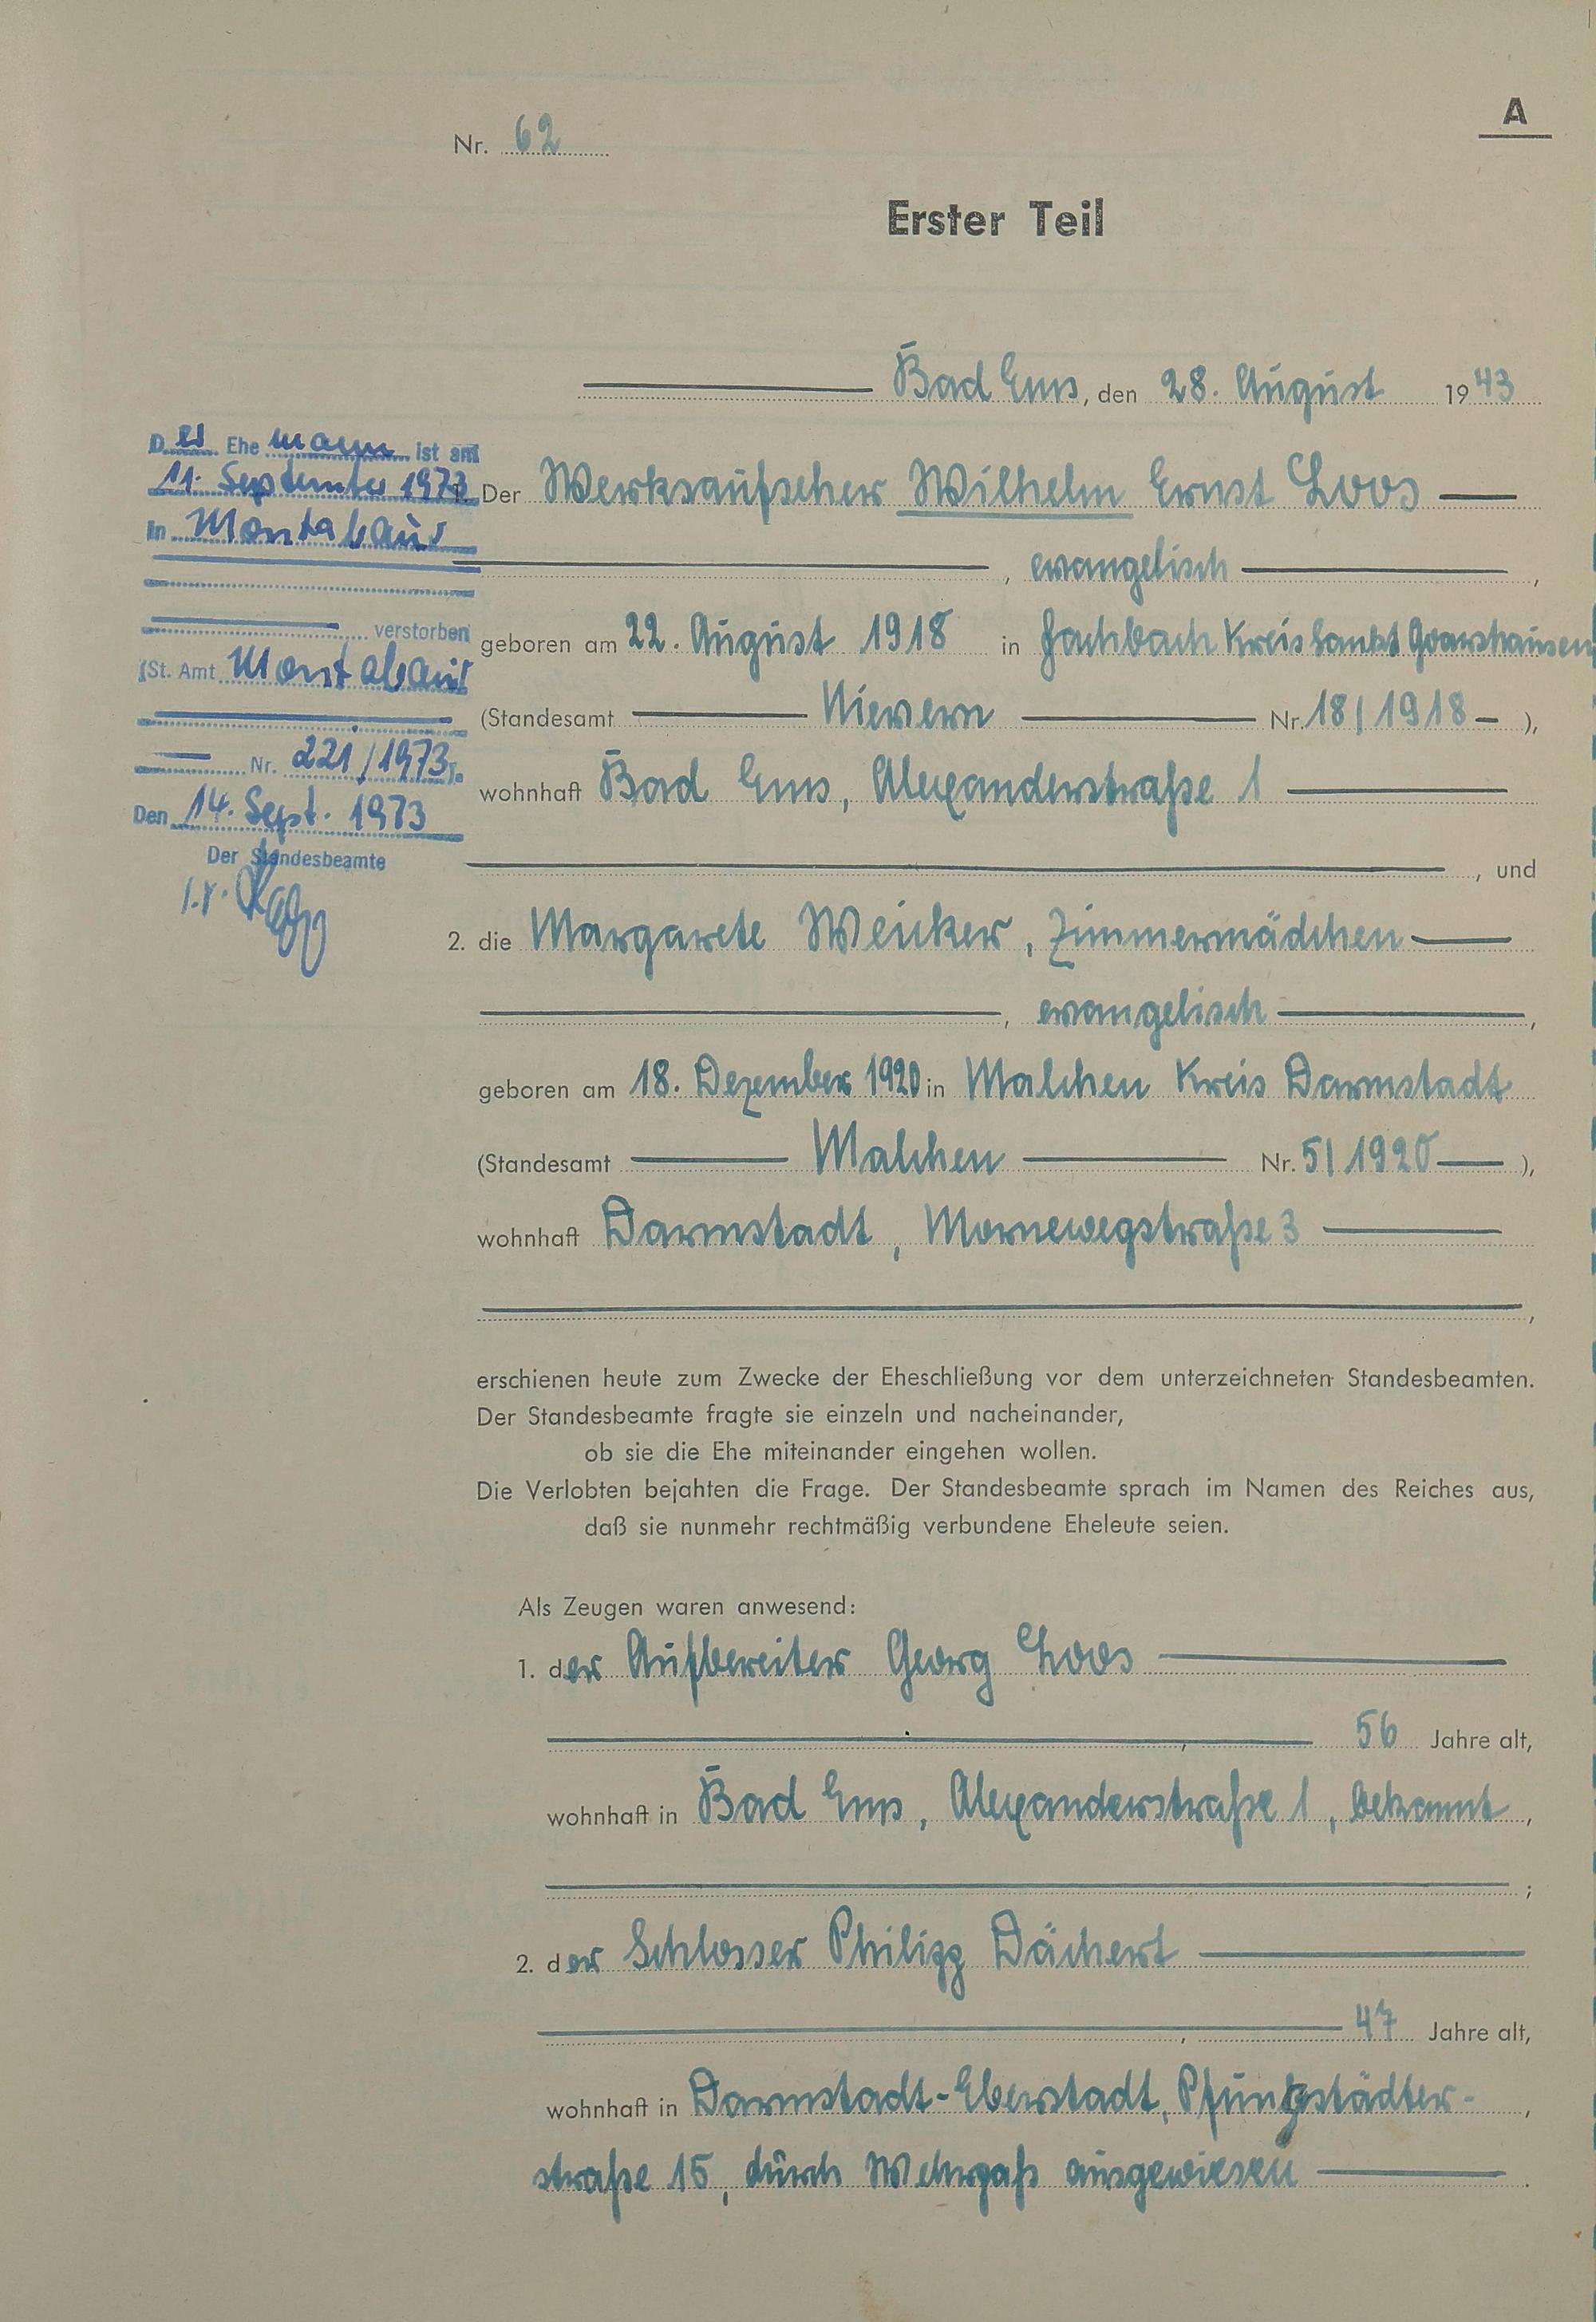 A
Nr. 62
Erster Teil
Bad Ems, den 28. August 1943
Der Ehemann ist am
11. September 1973
in Montabaur
verstorben
(St. Amt Montabaur
Nr. 221/1973).
Den 14. Sept. 1973
Der Standesbeamte
I.V.
1. Der Werksaufseher Wilhelm Ernst Loos
, evangelisch ,
geboren am 22. August 1918 in Fachbach Kreis Sankt Goarshausen
(Standesamt Nievern Nr. 18/1918 ),
wohnhaft Bad Ems, Alexanderstraße 1
, und
2. die Margarete Weicker, Zimmermädchen
, evangelisch ,
geboren am 18. Dezember 1920 in Malchen Kreis Darmstadt
(Standesamt Malchen Nr. 5/1920 ),
wohnhaft Darmstadt, Mornewegstraße 3
,
erschienen heute zum Zwecke der Eheschließung vor dem unterzeichneten Standesbeamten.
Der Standesbeamte fragte sie einzeln und nacheinander,
ob sie die Ehe miteinander eingehen wollen.
Die Verlobten bejahten die Frage. Der Standesbeamte sprach im Namen des Reiches aus,
daß sie nunmehr rechtmäßig verbundene Eheleute seien.
Als Zeugen waren anwesend:
1. der Aufbereiter Georg Loos
, 56 Jahre alt,
wohnhaft in Bad Ems, Alexanderstraße 1, bekannt ,
;
2. der Schlosser Philipp Dächert
, 47 Jahre alt,
wohnhaft in Darmstadt-Eberstadt, Pfungstädter- ,
straße 15, durch Wehrpaß ausgewiesen .